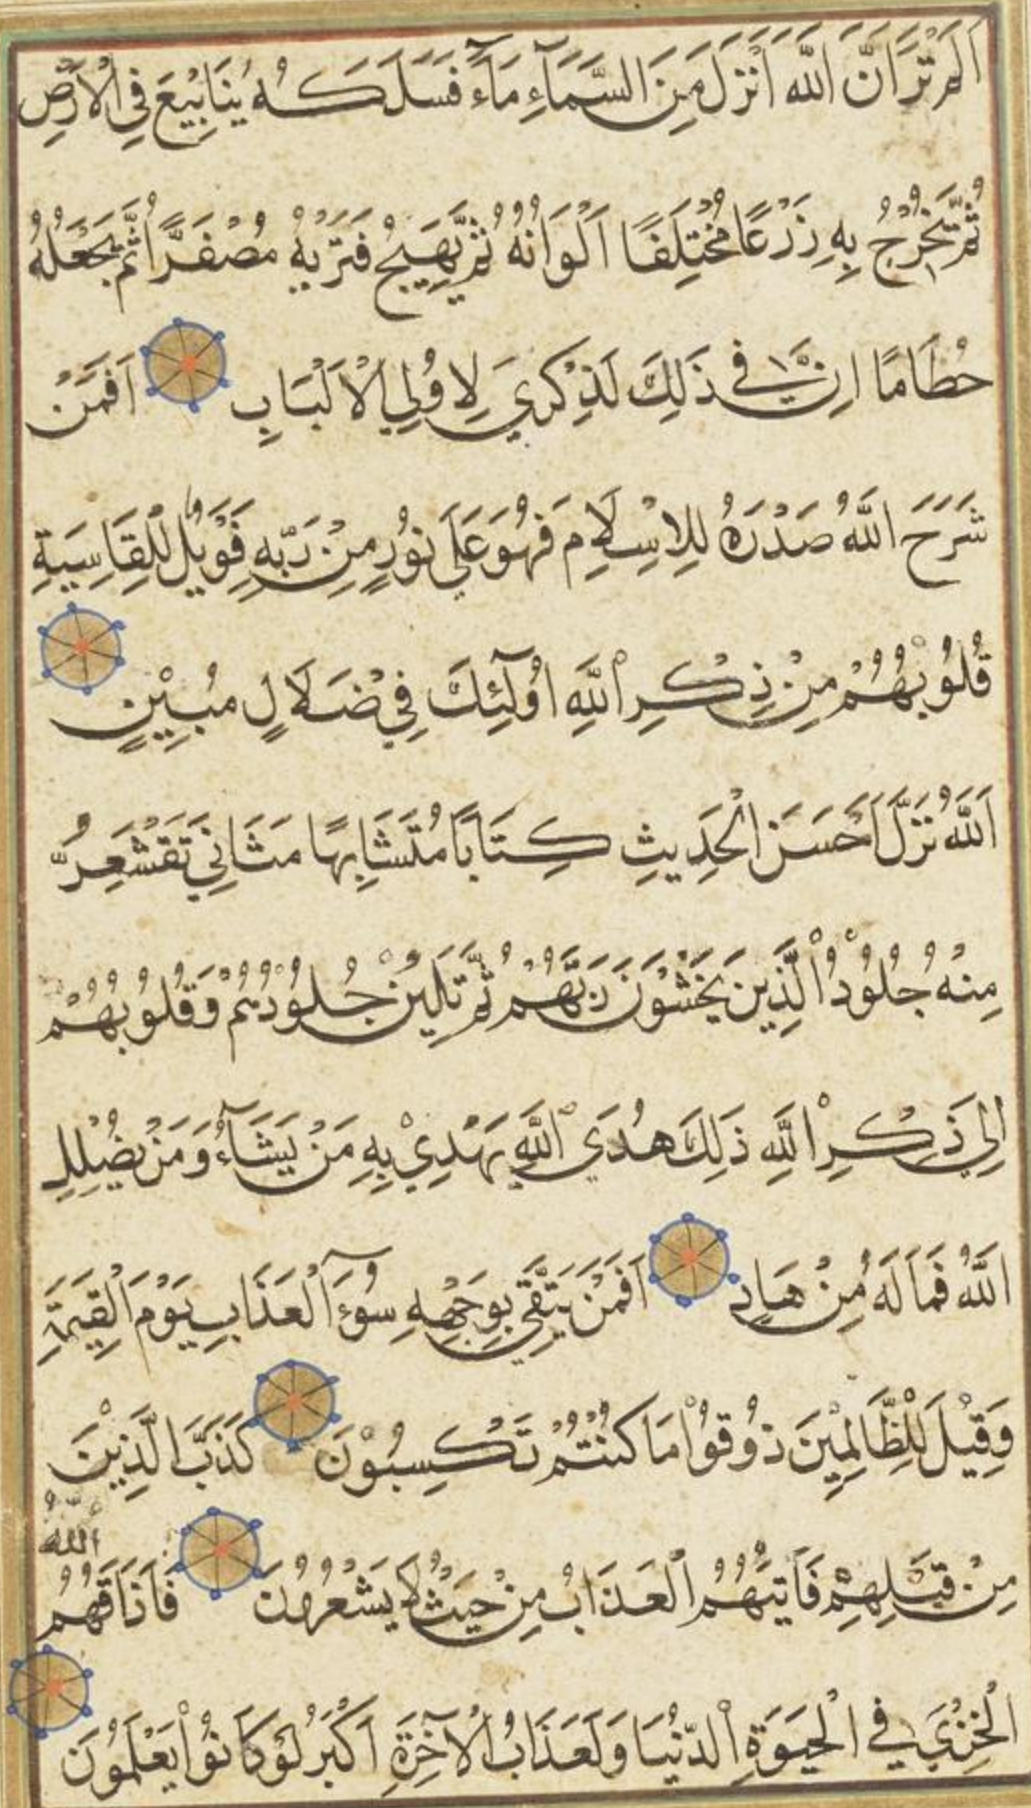 اَلَمْ تَرَ اَنَّ اللَّهَ اَنْزَلَ مِنَ السَّمَآءِ مَآءً فَسَلَكَهُ يَنَابِيعَ فِي الْاَرْضِ
ثُمَّ يُخْرِجُ بِهِ زَرْعًا مُخْتَلِفًا اَلْوَانُهُ ثُمَّ يَهِيجُ فَتَرٰيهُ مُصْفَرًّا ثُمَّ يَجْعَلُهُ
حُطَامًا اِنَّ فِي ذَلِكَ لَذِكْرَي لِاُولِي الْاَلْبَابِ اَفَمَنْ
شَرَحَ اللَّهُ صَدْرَهُ لِلْاِسْلَامِ فَهُوَ عَلَي نُورٍ مِنْ رَبِّهِ فَوَيْلٌ لِلْقَاسِيَةِ
قُلُوبُهُمْ مِنْ ذِكْرِ اللَّهِ اُولَٓئِكَ فِي ضَلَالٍ مُبِيْنٍ
اَللَّهُ نَزَّلَ اَحْسَنَ الْحَدِيثِ كِتَابًا مُتَشَابِهًا مَثَانِيَ تَقْشَعِرُّ
مِنْهُ جُلُوْدُ الَّذِينَ يَخْشَوْنَ رَبَّهُمْ ثُمَّ تَلِينُ جُلُوْدُهُمْ وَقُلُوبُهُمْ
اِلَي ذِكْرِ اللَّهِ ذَلِكَ هُدَي اللَّهِ يَهْدِيْ بِهِ مَنْ يَشَآءُ وَمَنْ يُضْلِلِ
اللَّهُ فَمَا لَهُ مِنْ هَادٍ اَفَمَنْ يَتَّقِي بِوَجْهِهِ سُوٓءَ الْعَذَابِ يَوْمَ الْقِيٰمَةِ
وَقِيْلَ لِلظَّالِمِيْنَ ذُوقُوْا مَا كُنْتُمْ تَكْسِبُوْنَ كَذَّبَ الَّذِيْنَ
مِنْ قَبْلِهِمْ فَاَتٰيهُمُ الْعَذَابُ مِنْ حَيْثُ لَا يَشْعُرُوْنَ فَاَذَاقَهُمُ اللّٰهُ
الْخِزْيَ فِي الْحَيٰوةِ الدُّنْيَا وَلَعَذَابُ الْاٰخِرَةِ اَكْبَرُ لَوْ كَانُوْا يَعْلَمُوْنَ